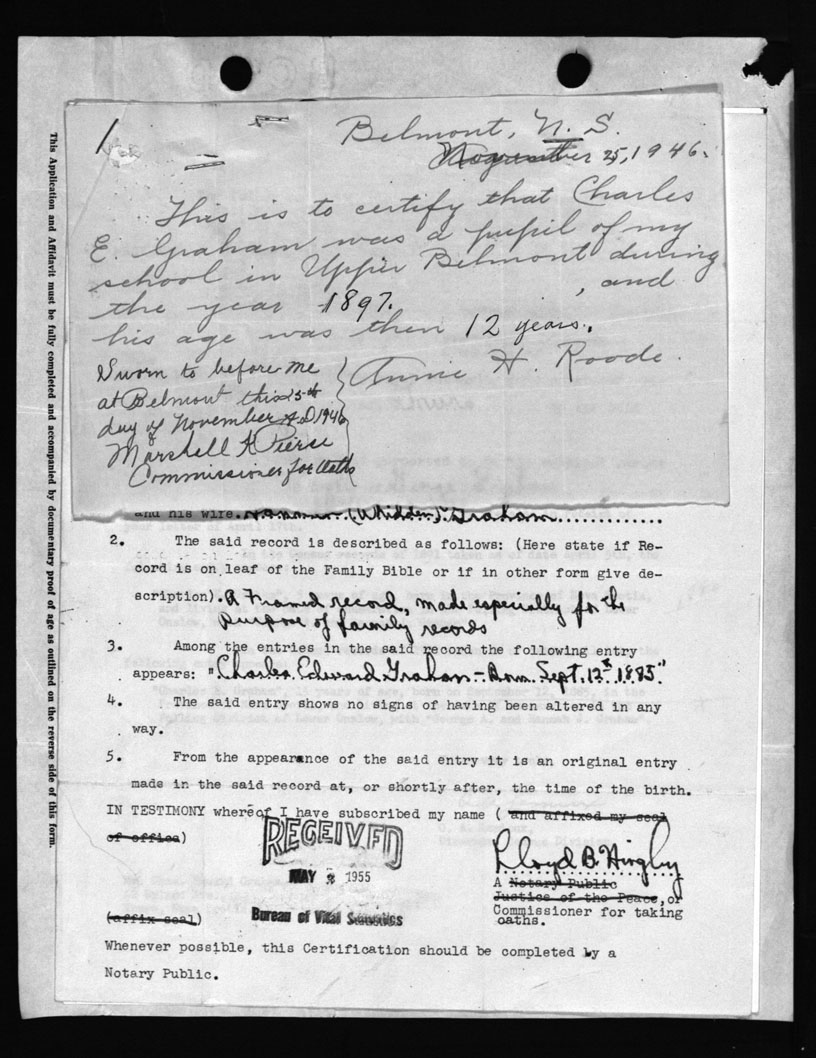 1
Belmont, N. S.
November 25, 1946.
This is to certify that Charles
E. Graham was a pupil of my
school in Upper Belmont during
the year 1897, and
his age was then 12 years.
Annie H. Roode.
Sworn to before me
at Belmont this 25th
day of November A.D 1946
Marshall Pierse
Commissioner for Oaths
and his wife. (Whidden) Graham
2. The said record is described as follows: (Here state if Re-
cord is on leaf of the Family Bible or if in other form give de-
scription). A Framed record, made especially for the
purpose of family records
3. Among the entries in the said record the following entry
appears: "Charles Edward Graham - Born Sept. 12th 1885."
4. The said entry shows no signs of having been altered in any
way.
5. From the appearance of the said entry it is an original entry
made in the said record at, or shortly after, the time of the birth.
IN TESTIMONY whereof I have subscribed my name ( and affixed my seal
of office)
RECEIVED
MAY 1955
Bureau of Vital Statistics
Lloyd B. Higby
A Notary Public
Justice of the Peace, or
Commissioner for taking
oaths.
(affix seal)
Whenever possible, this Certification should be completed by a
Notary Public.
This Application and Affidavit must be fully completed and accompanied by documentary proof of age as outlined on the reverse side of this form.